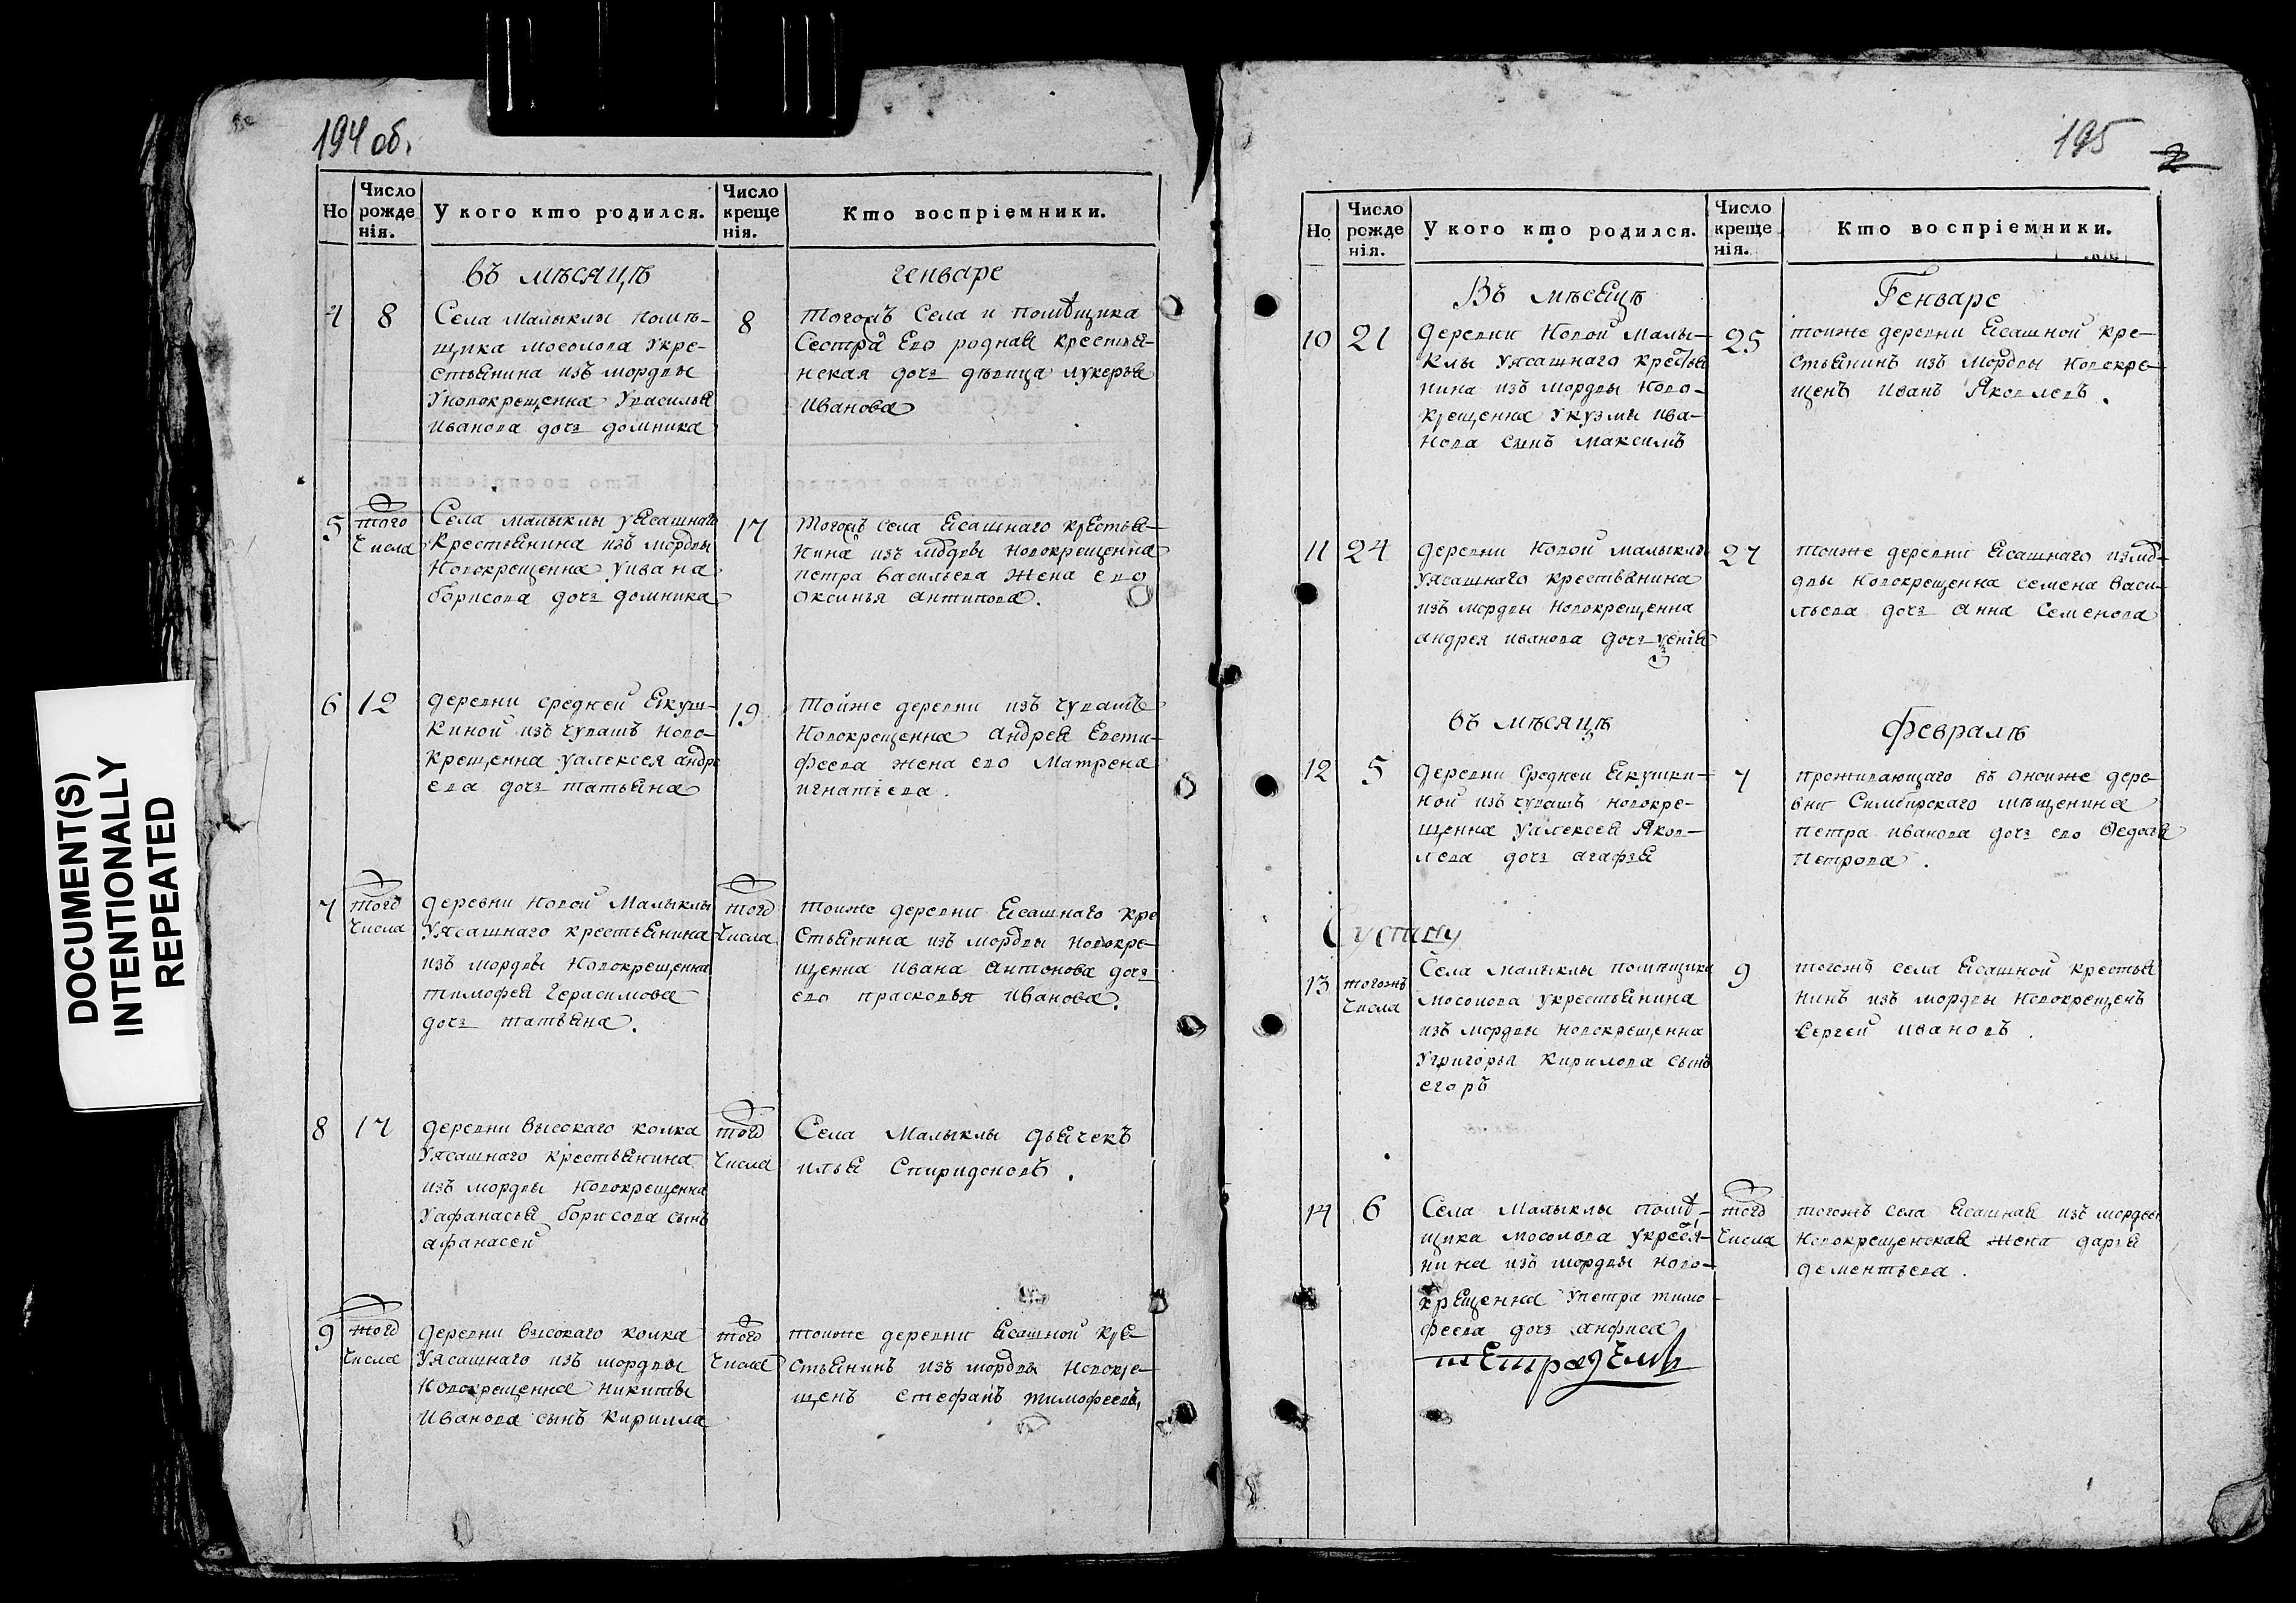 194 об.
Но
Число рожденія.
У кого кто родился.
Число крещенія.
Кто воспріемники.
въ мѣсяцѣ
генваре
4
8
Села малыклы помѣ-
щика мосолова Укре-
стьянина изъ мордвы
Уновокрещенна Увасилья
иванова дочь домника
8
тогожъ Села и помѣщика
Сестра Его родная крестья-
нская дочь дѣвица лукерья
иванова
5
того
числа
Села малыклы уясашнаго
Крестьянина изъ мордвы
Новокрещенна Уивана
борисова дочь домника
17
тогожъ села ясашнаго крЕстья-
нина изъ мордвы новокрещенна
петра васильева жена его
оксинья антипова.
6
12
деревни средней Якуш-
Киной изъ чувашъ ново-
крещенна уалексея андре
ева дочь татьяна
19
тойже деревни изъ чувашъ
Новокрещенна андрея Евсти-
феева жена его Матрена
игнатьева.
7
того
числа
деревни новой Малыклы
Уясашнаго крестьянина
изъ мордвы Новокрещенна
тимофея герасимова
дочь татьяна.
того
числа
тоиже деревни Ясашнаго кре
стьянина изъ мордвы новокре-
щенна ивана антонова дочь
его прасковья иванова.
8
17
деревни высокаго колка
Уясашнаго крестьянина
изъ мордвы Новокрещенна
Уафанасья борисова сынъ
афанасей
того
числа
Села Малыклы дьячекъ
илья Спиридоновъ.
9
того
числа
деревни высокаго колка
Уясашнаго изъ мордвы
Новокрещенна никиты
иванова сынъ кирилла
того
числа
тоиже деревни Ясашной крЕ-
стьянинъ изъ мордвы новокре-
щенъ стефанъ тимофеевъ,
195
2
Но
Число рожденія.
У кого кто родился.
Число крещенія.
Кто воспріемники.
Въ мѣсЕцѣ
Генваре
10
21
деревни Новой Малы-
клы уясашнаго крестья
нина изъ мордвы Ново-
крещенна Укузмы ива-
нова сынъ максимъ
25
тоиже деревни Ясашной кре-
стьянинъ изъ мордвы новокре-
щенъ иванъ Яковлевъ.
11
24
деревни Новой малыклы
уясашнаго крестьянина
изъ мордвы новокрещенна
андрея иванова дочь
27
тоиже деревни Ясашнаго измо-
рдвы новокрещенна семена васи-
льева дочь анна семенова
въ мѣсяцѣ
Февралѣ
12
5
деревни средней Якушки-
ной изъ чувашъ новокре-
щенна уалексея Яков-
лева дочь агафья
7
проживающаго въ оноиже дере-
вни Симбирскаго мѣщенина
петра иванова дочь его Ѳедосья
Петрова.
13
тогожъ
числа
Села малыклы помѣщика
мосолова укрестьянина
изъ мордвы новокрещенна
Угригорья кирилова сынъ
егоръ
9
тогожъ села Ясашной крестья
нинъ изъ мордвы новокрещенъ
сергей ивановъ.
14
6
Села малыклы помѣ-
щика мосолова укрестя-
нина изъ мордвы ново-
крЕщенна Упетра тимо-
феева дочь анфиса
того
числа
тогожъ села Ясашная изъ мордвы
новокрещенская жена дарья
дементьева.
DOCUMENT(S)
INTENTIONALLY
REPEATED